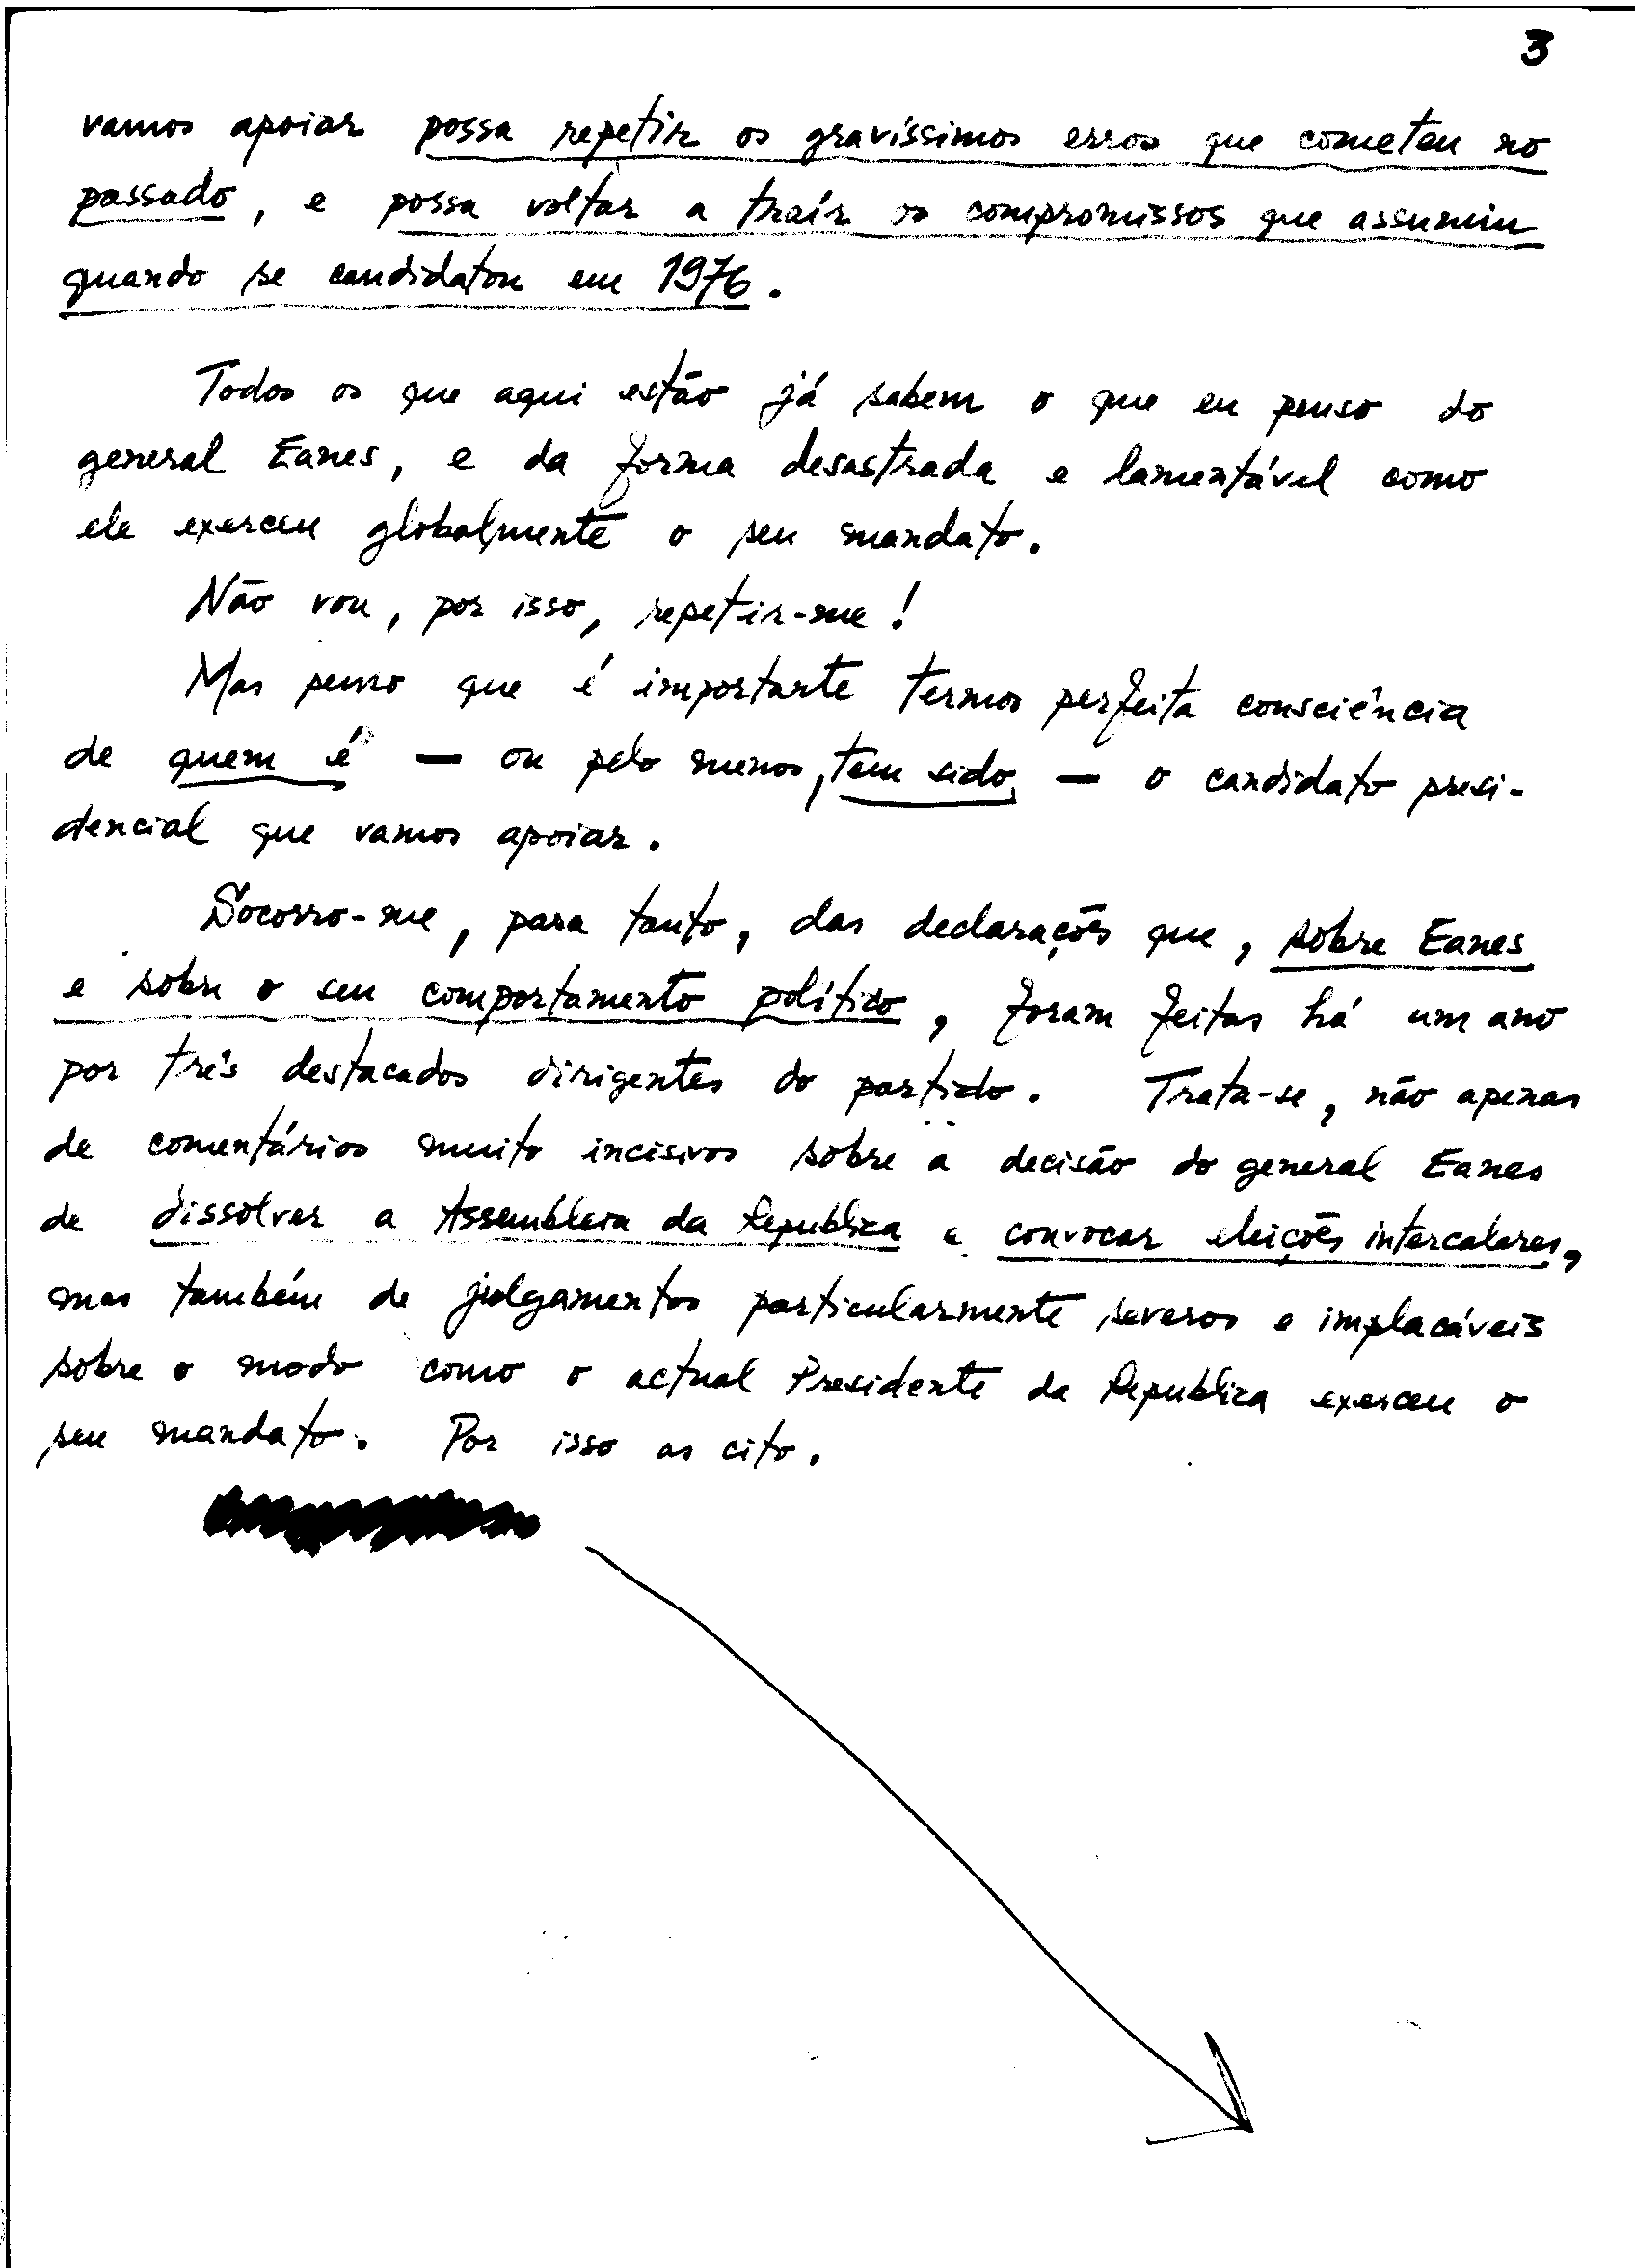 3
vamos apoiar possa repetir os gravíssimos erros que cometeu no
passado, e possa voltar a traír os compromissos que assumiu
quando se candidatou em 1976.
Todos os que aqui estão já sabem o que eu penso do
general Eanes, e da forma desastrada e lamentável como
ele exerceu globalmente o seu mandato.
Não vou, por isso, repetir-me!
Mas penso que é importante termos perfeita consciência
de quem é — ou pelo menos, tem sido, — o candidato presi-
dencial que vamos apoiar.
Socorro-me, para tanto, das declarações que, sobre Eanes
e sobre o seu comportamento político, foram feitas há um ano
por três destacados dirigentes do partido. Trata-se, não apenas
de comentários muito incisivos sobre a decisão do general Eanes
de dissolver a Assembleia da Republica e convocar eleições intercalares,
mas também de julgamentos particularmente severos e implacáveis
sobre o modo como o actual Presidente da Republica exerceu o
seu mandato. Por isso as cito.